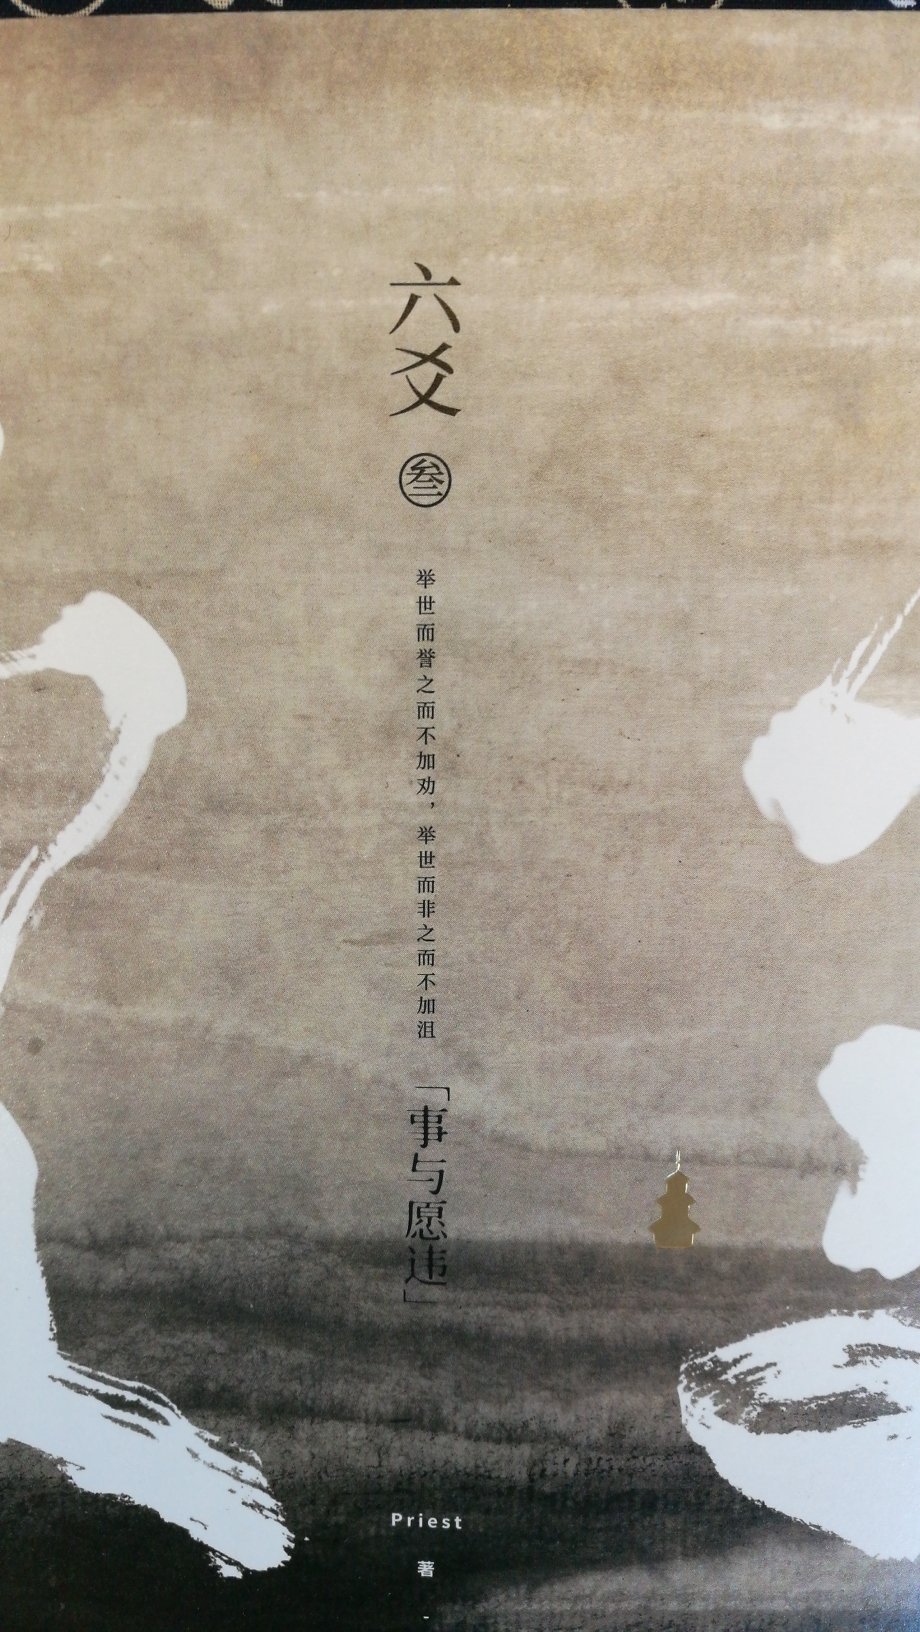 六爻
叁
举世而誉之而不加劝，举世而非之而不加沮
「事与愿违」
Priest
著